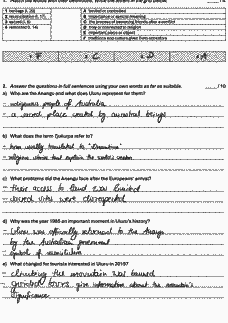 1 heritage
A limited or controlled
B importance or special meaning
E
F traditions and culture given from ancestors
F
C
D
A
2. Answer the questions in full sentences using your own words as far as suitable. /10
a) Who are the Anangu and what does Uluru represent for them?
- indigenous people of Australia
- a sacred place created by ancestral beings
b) What does the term Tjukurpa refer to?
- term usually translated to "Dreamtime"
- religious stories that explain the world's creation
c) What problems did the Anangu face after the Europeans' arrival?
- their access to land was limited
- sacred sites were disrespected
d) Why was the year 1985 an important moment in Uluru's history?
- Uluru was officially returned to the Anangu
by the Australian government
- symbol of reconciliation
e) What changed for tourists interested in Uluru in 2019?
- climbing the mountain was banned
- guided tours give information about the mountain's
significance